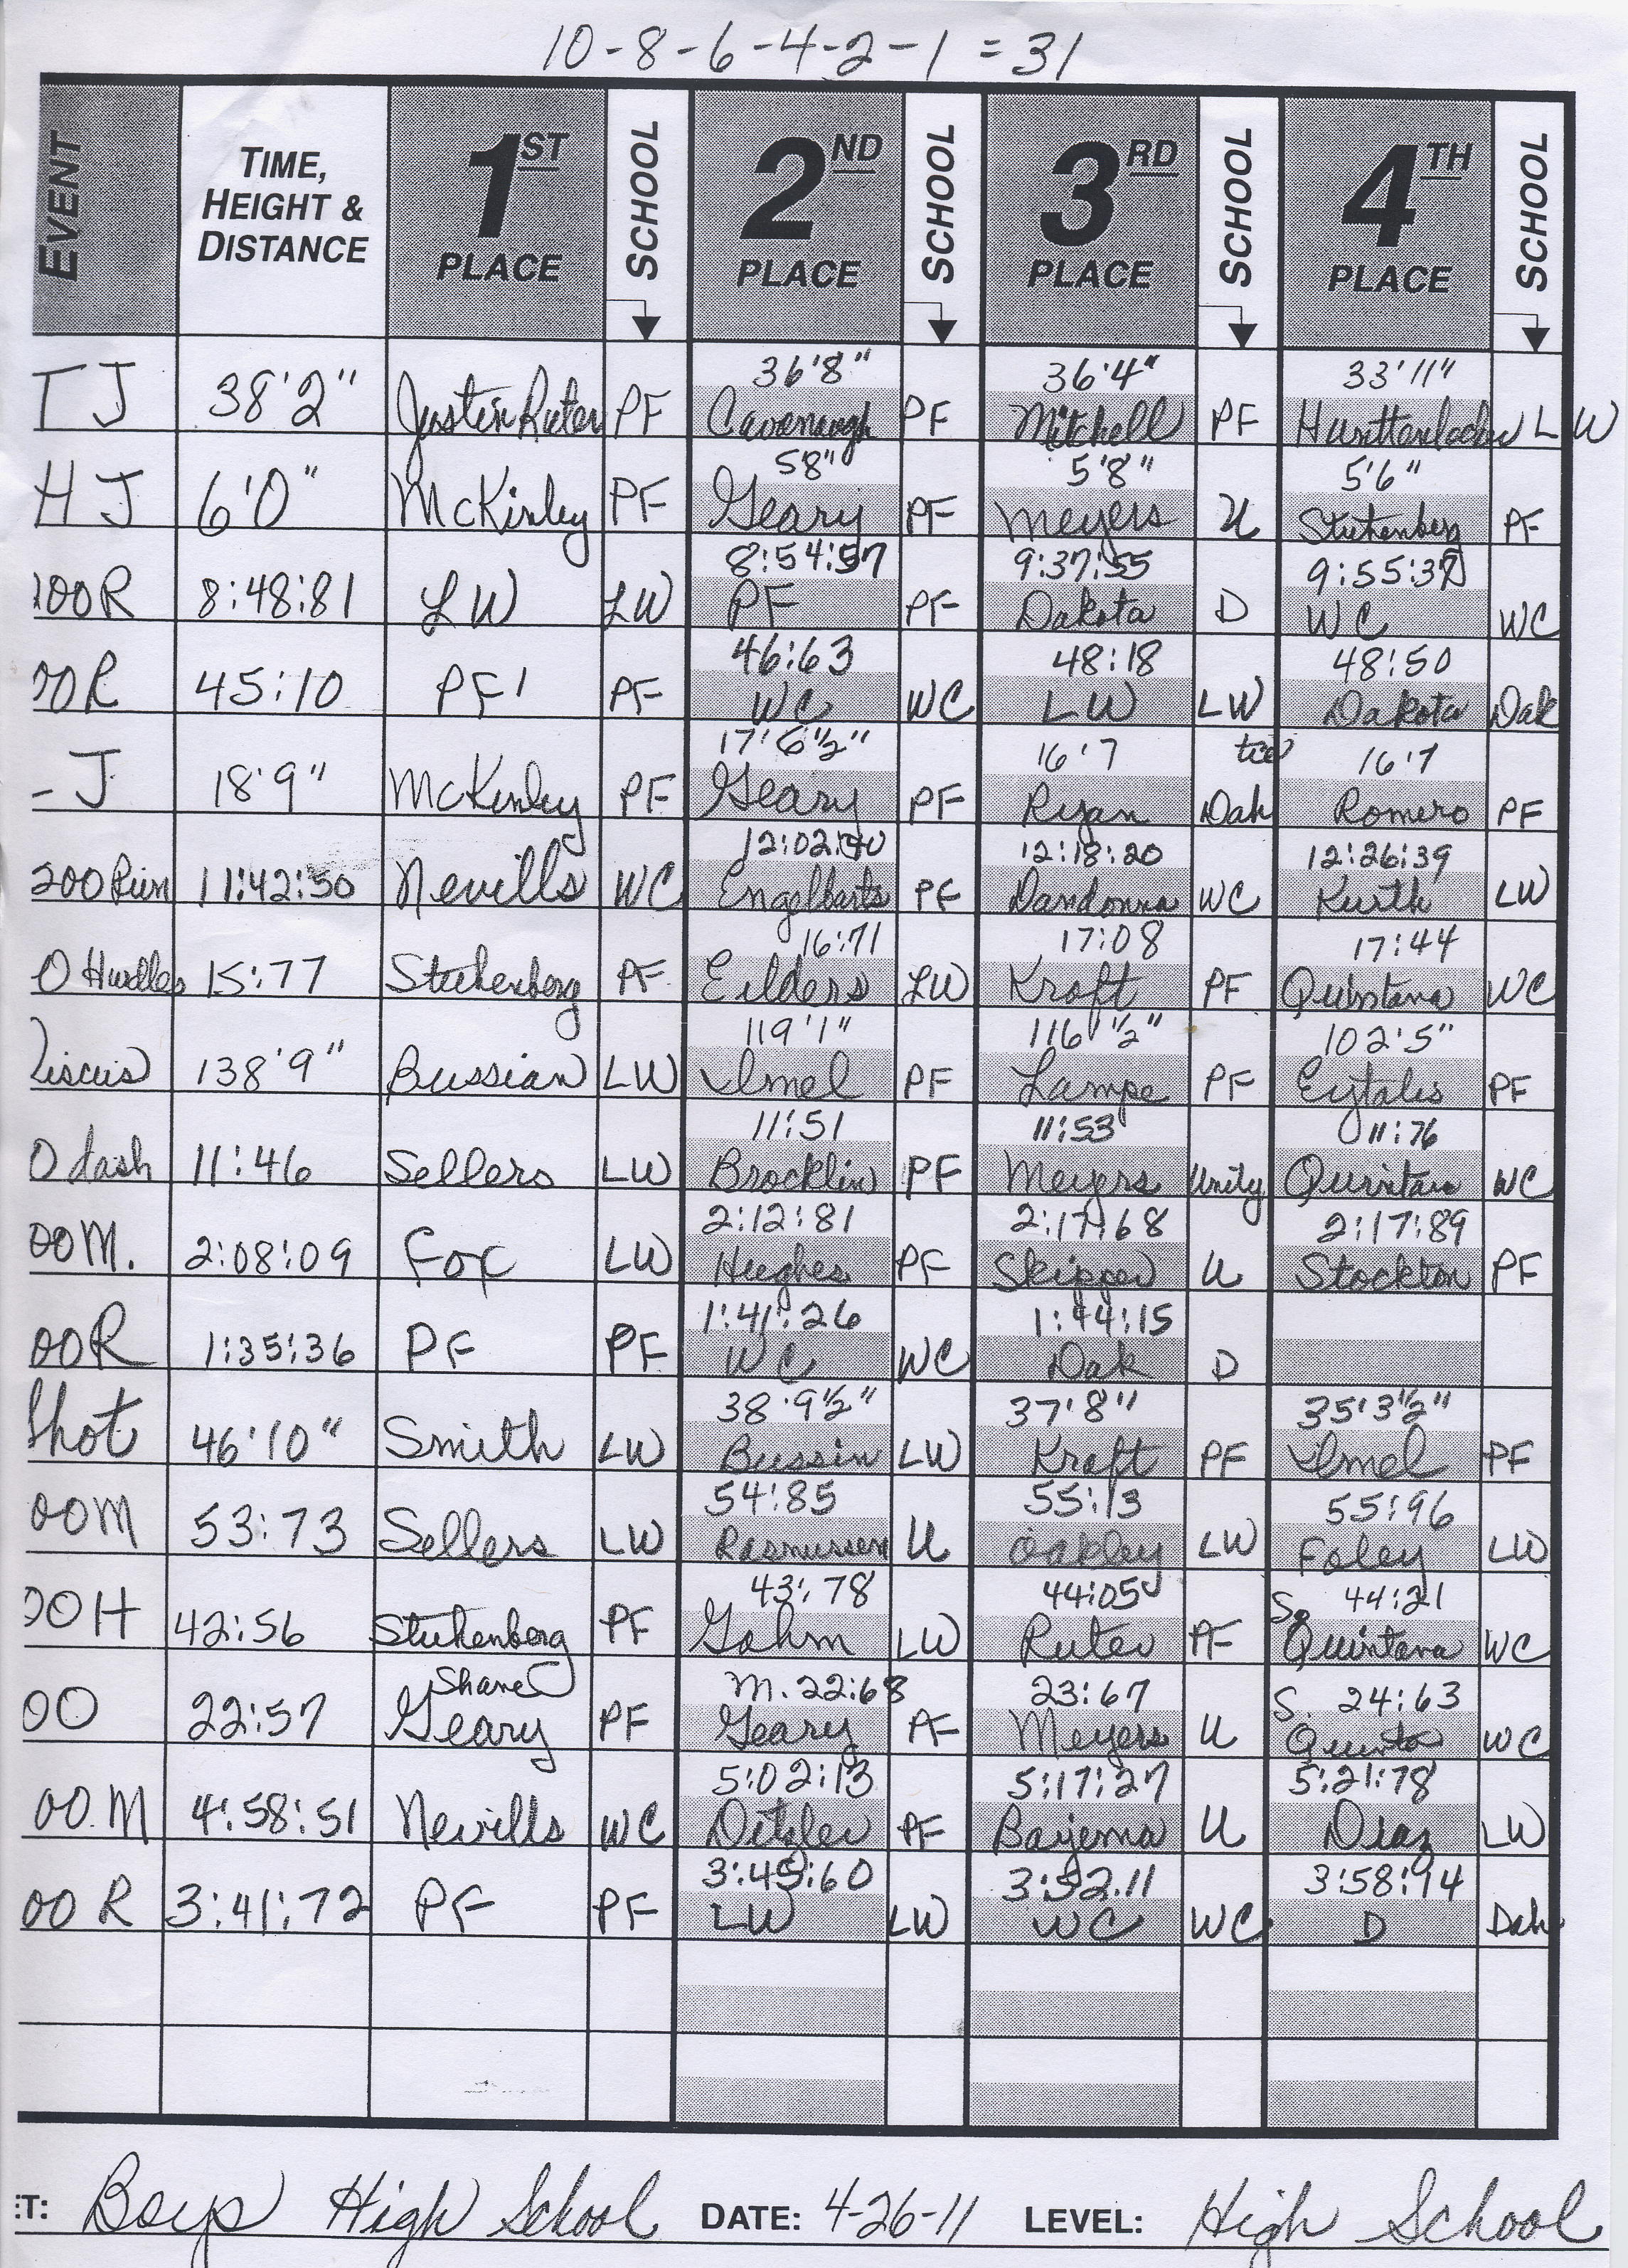 10-8-6-4-2-1 = 31
EVENT TIME, HEIGHT & DISTANCE 1ST PLACE SCHOOL 2ND PLACE SCHOOL 3RD PLACE SCHOOL 4TH PLACE SCHOOL
36'8" 36'4" 33'11"
TJ 38'2" Justin Ruter PF Cavenaugh PF Mitchell PF LW
58" 5'8" 5'6"
HJ 6'0" McKinley PF Geary PF Meyers U Stuhenberg PF
8:54:57 9:37:55 9:55:37
100R 8:48:81 LW LW PF PF Dakota D WC WC
46:63 48:18 48:50
00R 45:10 PF' PF WC WC LW LW Dakota Dak
17'6½" 16'7 tie 16'7
J 18'9" McKinley PF Geary PF Ryan Dak Romero PF
12:02:40 12:18:20 12:26:39
200 Run 11:42:50 Nevills WC Engelbarts PF Dandonna WC Kurth LW
16:71 17:08 17:44
0 Hurdles 15:77 Stuhenberg PF Eilders LW Kraft PF Quinstana WC
119'1" 116'1½" 102'5"
Discus 138'9" Bussian LW Imel PF Lampe PF Eytalis PF
11:51 11:53 11:76
0 dash 11:46 Sellers LW Brocklin PF Meyers Unity Quintana WC
2:12:81 2:17:68 2:17:89
00M. 2:08:09 Fox LW Hughes PF Skipper U Stockton PF
1:41:26 1:44:15
00R 1:35:36 PF PF WC WC Dak D
38'9½" 37'8" 35'3½"
Shot 46'10" Smith LW Bussin LW Kraft PF Imel PF
54:85 55:13 55:96
00M 53:73 Sellers LW Rasmussen U Oakley LW Foley LW
43:78 44:05 44:21
00H 42:56 Stuhenberg PF Gahm LW Ruter PF S. Quintana WC
Shane M. 22:68 23:67 S. 24:63
00 22:57 Geary PF Geary PF Meyers U Quinta WC
5:02:13 5:17:27 5:21:78
00.M 4:58:51 Nevills WC Ditzler PF Bayema U Diaz LW
3:45:60 3:52.11 3:58:94
00 R 3:41:72 PF PF LW LW WC WC D Dak
ET: Boys High School DATE: 4-26-11 LEVEL: High School